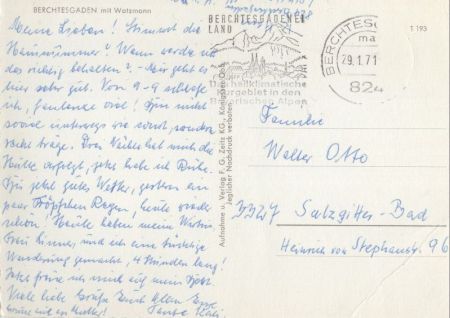 BERCHTESGADEN mit Watzmann
Meine Lieben! Stimmt die
Hausnummer? Wann werde ich
das richtig behalten? - Mir geht es
hier sehr gut. Von 9-9 schlafe
ich, faulenze viel! Bin nicht
soviel unterwegs wie sonst, sondern
sehr träge. Das Wetter hat mich
jetzt habe ich Ruhe.
gutes Wetter, gestern ein
paar Tröpfchen Regen, heute
schön. Heute haben meine
und ich eine tüchtige
Wanderung gemacht, 4 Stunden lang!
Jetzt freue ich mich auf mein Bett.
Viele liebe Grüße Euch Allen Eure
Tante
BERCHTESGADENER
LAND
heilklimatische
Kurgebiet in den
Bayerischen Alpen
BERCHTESG
29.1.71
824
T 193
Aufnahme u. Verlag F. G. Zeitz KG., Königssee/Obb.
Jeglicher Nachdruck verboten
Familie
Walter Otto
3327 Salzgitter-Bad
Heinrich von Stephanstr. 96